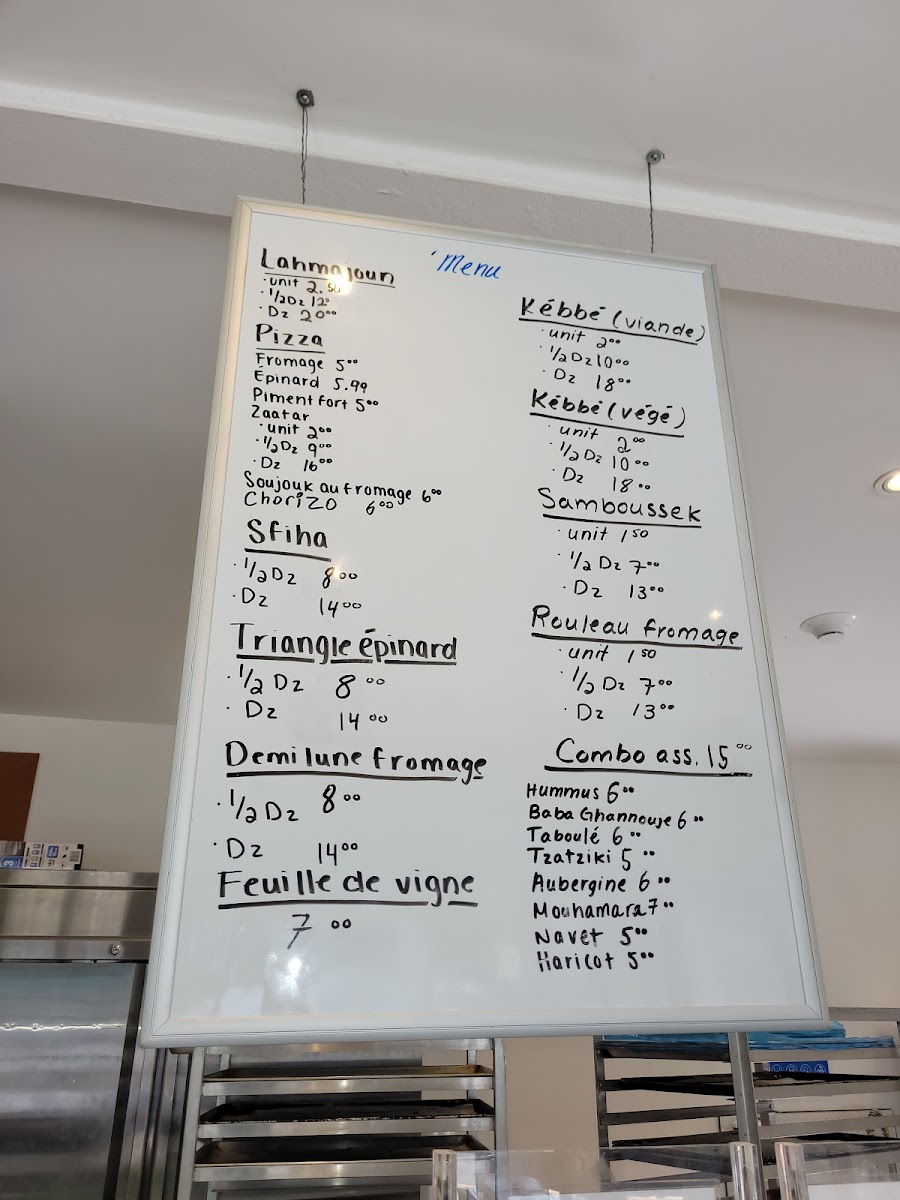 Menu
Lahmajoun
· unit 2.50
· 1/2 Dz 12⁰
· Dz 20⁰⁰
Pizza
Fromage 5⁰⁰
Épinard 5.99
Piment fort 5⁰⁰
Zaatar
· unit 2⁰⁰
· 1/2 Dz 9⁰⁰
· Dz 16⁰⁰
Soujouk au fromage 6⁰⁰
Chorizo 6⁰⁰
Sfiha
· 1/2 Dz 8⁰⁰
· Dz 14⁰⁰
Triangle épinard
· 1/2 Dz 8⁰⁰
· Dz 14⁰⁰
Demi lune fromage
· 1/2 Dz 8⁰⁰
· Dz 14⁰⁰
Feuille de vigne
7⁰⁰
Kébbé (viande)
· unit 2⁰⁰
· 1/2 Dz 10⁰⁰
· Dz 18⁰⁰
Kébbé (végé)
· unit 2⁰⁰
· 1/2 Dz 10⁰⁰
· Dz 18⁰⁰
Samboussek
· unit 1⁵⁰
· 1/2 Dz 7⁰⁰
· Dz 13⁰⁰
Rouleau fromage
· unit 1⁵⁰
· 1/2 Dz 7⁰⁰
· Dz 13⁰⁰
Combo ass. 15⁰⁰
Hummus 6⁰⁰
Baba Ghannouje 6⁰⁰
Taboulé 6⁰⁰
Tzatziki 5⁰⁰
Aubergine 6⁰⁰
Mouhamara 7⁰⁰
Navet 5⁰⁰
Haricot 5⁰⁰